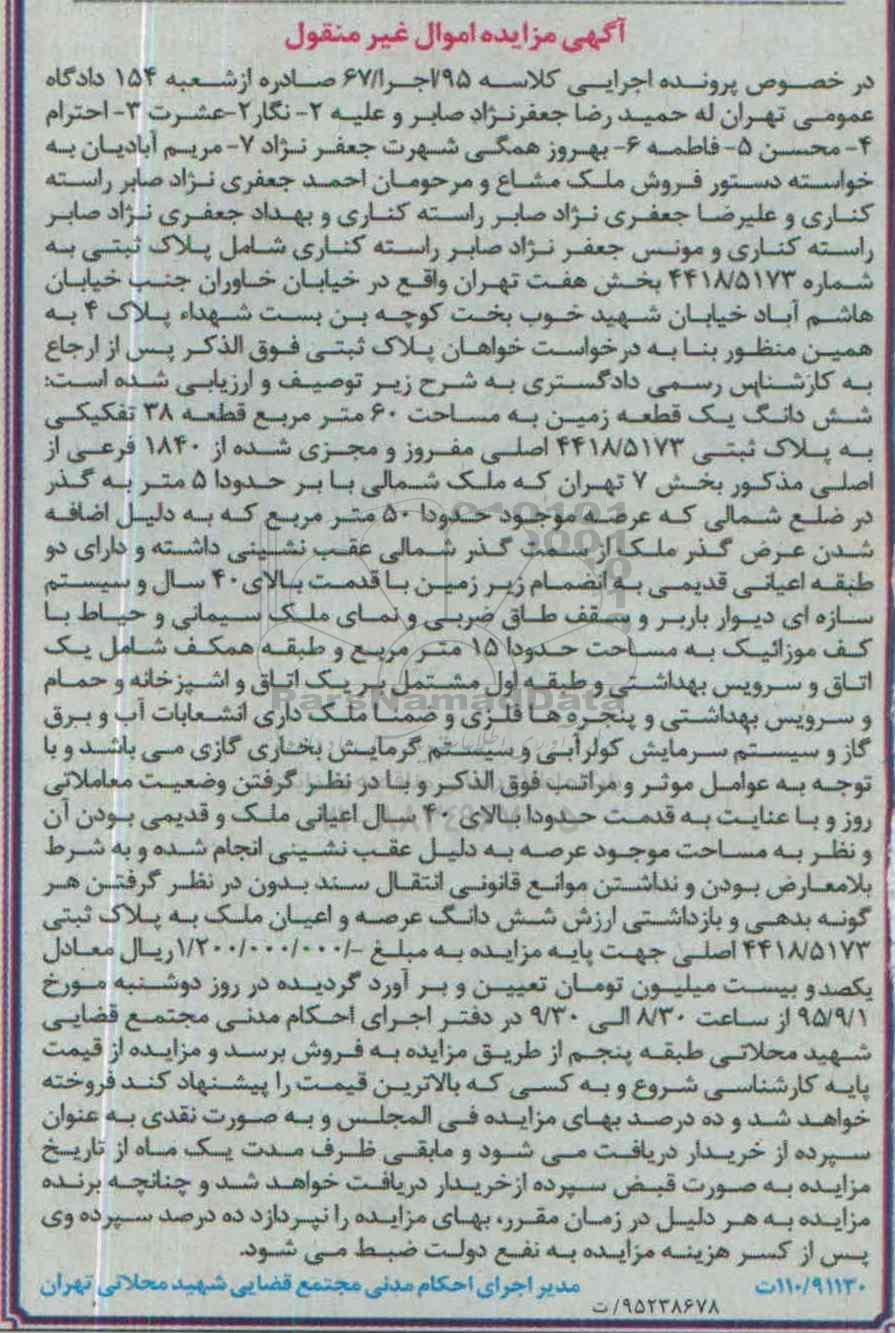 آگهی مزایده اموال غیر منقول
در خصوص پرونده اجرایی کلاسه ۹۵/اجرا/۶۷ صادره ازشعبه ۱۵۴ دادگاه
عمومی تهران له حمید رضا جعفرنژاد صابر و علیه ۲- نگار۲-عشرت ۳- احترام
۴- محسن ۵- فاطمه ۶- بهروز همگی شهرت جعفر نژاد ۷- مریم آبادیان به
خواسته دستور فروش ملک مشاع و مرحومان احمد جعفری نژاد صابر راسته
کناری و علیرضا جعفری نژاد صابر راسته کناری و بهداد جعفری نژاد صابر
راسته کناری و مونس جعفر نژاد صابر راسته کناری شامل پلاک ثبتی به
شماره ۴۴۱۸/۵۱۷۳ بخش هفت تهران واقع در خیابان خاوران جنب خیابان
هاشم آباد خیابان شهید خوب بخت کوچه بن بست شهداء پلاک ۴ به
همین منظور بنا به درخواست خواهان پلاک ثبتی فوق الذکر پس از ارجاع
به کارشناس رسمی دادگستری به شرح زیر توصیف و ارزیابی شده است:
شش دانگ یک قطعه زمین به مساحت ۶۰ متر مربع قطعه ۳۸ تفکیکی
به پلاک ثبتی ۴۴۱۸/۵۱۷۳ اصلی مفروز و مجزی شده از ۱۸۴۰ فرعی از
اصلی مذکور بخش ۷ تهران که ملک شمالی با بر حدودا ۵ متر به گذر
در ضلع شمالی که عرصه موجود حدودا ۵۰ متر مربع که به دلیل اضافه
شدن عرض گذر ملک از سمت گذر شمالی عقب نشینی داشته و دارای دو
طبقه اعیانی قدیمی به انضمام زیر زمین با قدمت بالای ۴۰ سال و سیستم
سازه ای دیوار باربر و سقف طاق ضربی و نمای ملک سیمانی و حیاط با
کف موزائیک به مساحت حدودا ۱۵ متر مربع و طبقه همکف شامل یک
اتاق و سرویس بهداشتی و طبقه اول مشتمل بر یک اتاق و اشپزخانه و حمام
و سرویس بهداشتی و پنجره ها فلزی و ضمنا ملک داری انشعابات آب و برق
گاز و سیستم سرمایش کولرآبی و سیستم گرمایش بخاری گازی می باشد و با
توجه به عوامل موثر و مراتب فوق الذکر و با در نظر گرفتن وضعیت معاملاتی
روز و با عنایت به قدمت حدودا بالای ۴۰ سال اعیانی ملک و قدیمی بودن آن
و نظر به مساحت موجود عرصه به دلیل عقب نشینی انجام شده و به شرط
بلامعارض بودن و نداشتن موانع قانونی انتقال سند بدون در نظر گرفتن هر
گونه بدهی و بازداشتی ارزش شش دانگ عرصه و اعیان ملک به پلاک ثبتی
۴۴۱۸/۵۱۷۳ اصلی جهت پایه مزایده به مبلغ -/۱/۲۰۰/۰۰۰/۰۰۰ریال معادل
یکصدو بیست میلیون تومان تعیین و بر آورد گردیده در روز دوشنبه مورخ
۹۵/۹/۱ از ساعت ۸/۳۰ الی ۹/۳۰ در دفتر اجرای احکام مدنی مجتمع قضایی
شهید محلاتی طبقه پنجم از طریق مزایده به فروش برسد و مزایده از قیمت
پایه کارشناسی شروع و به کسی که بالاترین قیمت را پیشنهاد کند فروخته
خواهد شد و ده درصد بهای مزایده فی المجلس و به صورت نقدی به عنوان
سپرده از خریدار دریافت می شود و مابقی ظرف مدت یک ماه از تاریخ
مزایده به صورت قبض سپرده ازخریدار دریافت خواهد شد و چنانچه برنده
مزایده به هر دلیل در زمان مقرر، بهای مزایده را نپردازد ده درصد سپرده وی
پس از کسر هزینه مزایده به نفع دولت ضبط می شود.
۱۱۰/۹۱۱۳۰ت مدیر اجرای احکام مدنی مجتمع قضایی شهید محلاتی تهران
۹۵۲۳۸۶۷۸/ت
ParsNamadData